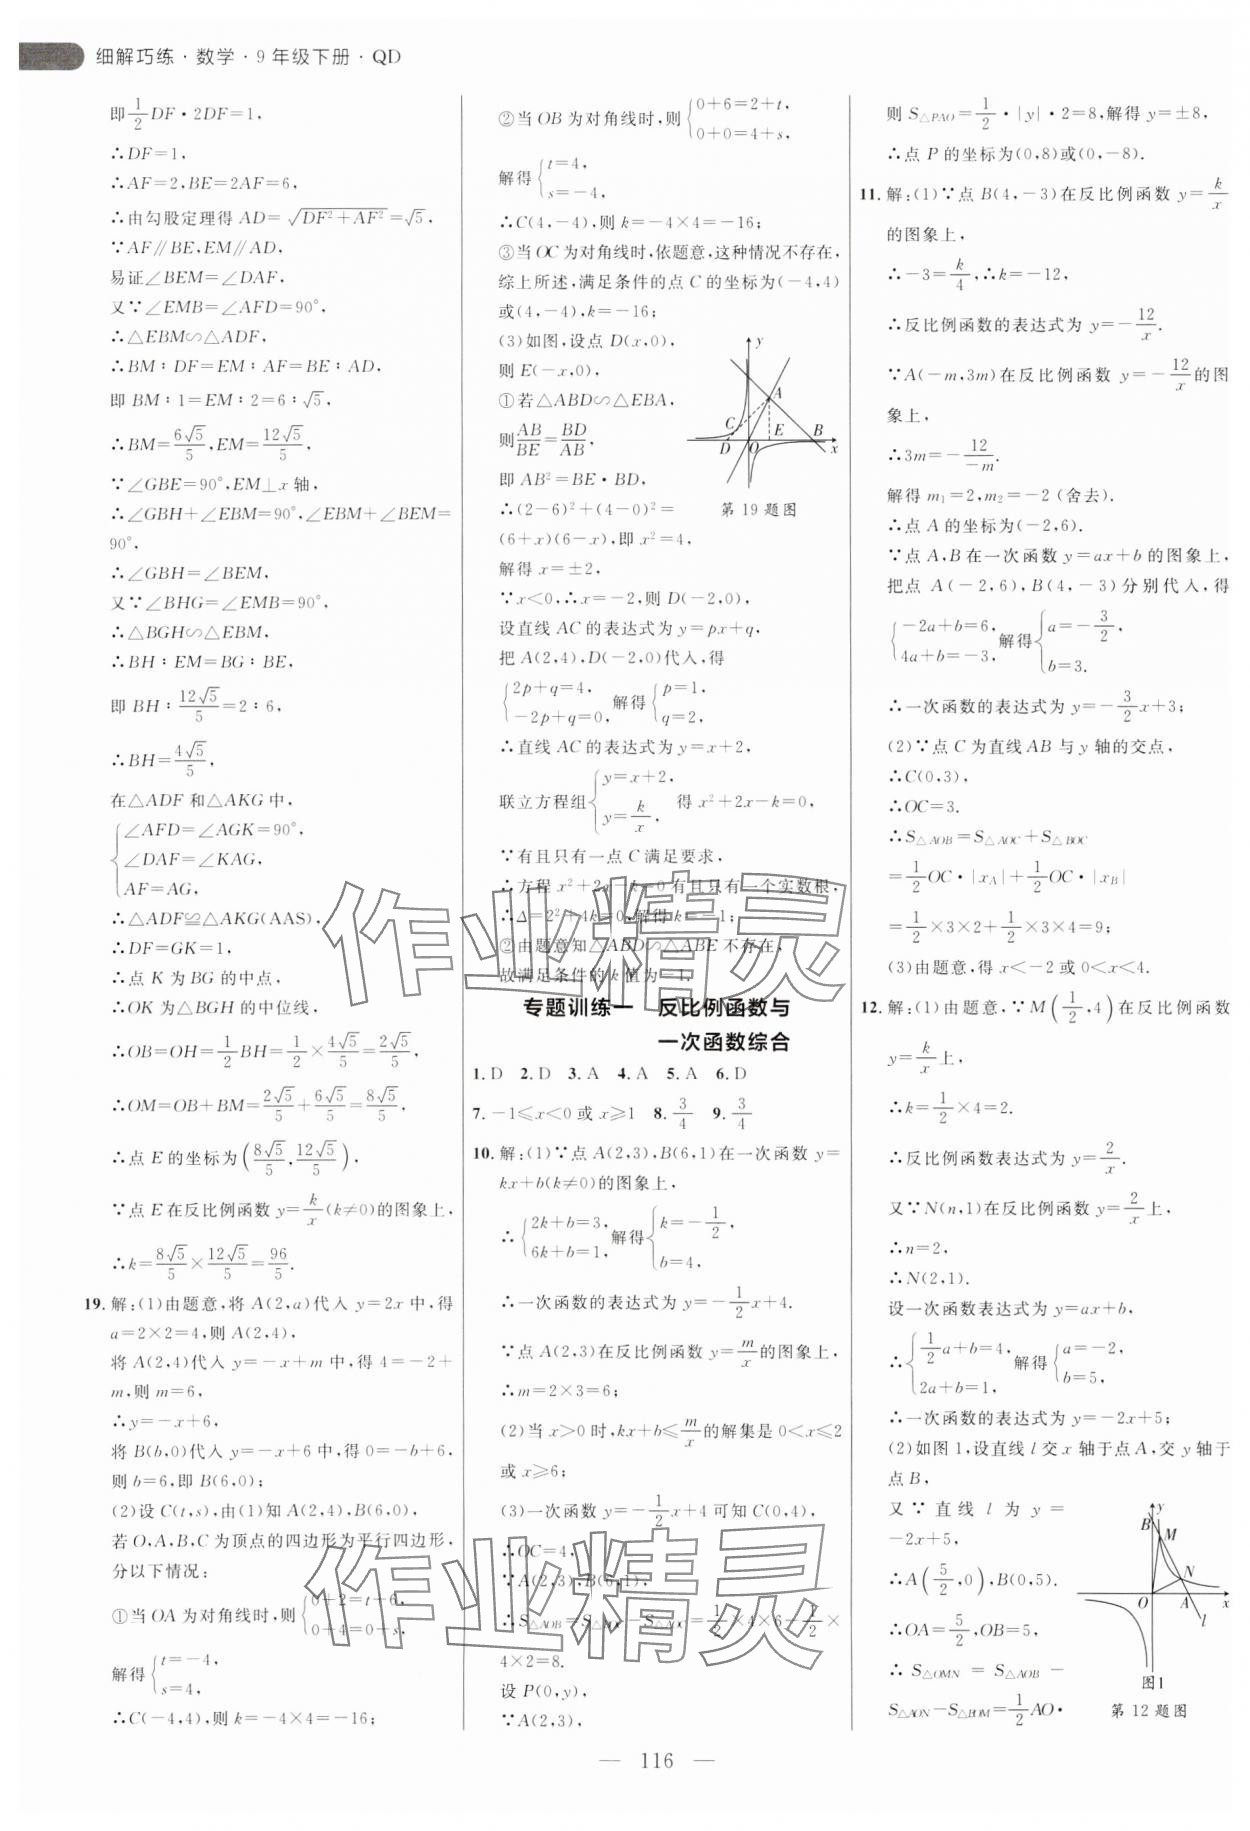 细解巧练·数学·9年级下册·QD
即1/2DF·2DF=1,
∴DF=1,
∴AF=2,BE=2AF=6,
∴由勾股定理得AD=√(DF²+AF²)=√5,
∵AF∥BE,EM∥AD,
易证∠BEM=∠DAF,
又∵∠EMB=∠AFD=90°,
∴△EBM∽△ADF,
∴BM∶DF=EM∶AF=BE∶AD,
即BM∶1=EM∶2=6∶√5,
∴BM=6√5/5,EM=12√5/5,
∵∠GBE=90°,EM⊥x轴,
∴∠GBH+∠EBM=90°,∠EBM+∠BEM=
90°,
∴∠GBH=∠BEM,
又∵∠BHG=∠EMB=90°,
∴△BGH∽△EBM,
∴BH∶EM=BG∶BE,
即BH∶12√5/5=2∶6,
∴BH=4√5/5,
在△ADF和△AKG中,
{∠AFD=∠AGK=90°,
∠DAF=∠KAG,
AF=AG,
∴△ADF≌△AKG(AAS),
∴DF=GK=1,
∴点K为BG的中点,
∴OK为△BGH的中位线,
∴OB=OH=1/2BH=1/2×4√5/5=2√5/5,
∴OM=OB+BM=2√5/5+6√5/5=8√5/5,
∴点E的坐标为(8√5/5,12√5/5),
∵点E在反比例函数y=k/x(k≠0)的图象上,
∴k=8√5/5×12√5/5=96/5.
19.解:(1)由题意,将A(2,a)代入y=2x中,得
a=2×2=4,则A(2,4),
将A(2,4)代入y=-x+m中,得4=-2+
m,则m=6,
∴y=-x+6,
将B(b,0)代入y=-x+6中,得0=-b+6,
则b=6,即B(6,0);
(2)设C(t,s),由(1)知A(2,4),B(6,0),
若O,A,B,C为顶点的四边形为平行四边形,
分以下情况:
①当OA为对角线时,则{0+2=t+6,
0+4=0+s,
解得{t=-4,
s=4,
∴C(-4,4),则k=-4×4=-16;
②当OB为对角线时,则{0+6=2+t,
0+0=4+s,
解得{t=4,
s=-4,
∴C(4,-4),则k=-4×4=-16;
③当OC为对角线时,依题意,这种情况不存在,
综上所述,满足条件的点C的坐标为(-4,4)
或(4,-4),k=-16;
(3)如图,设点D(x,0),
则E(-x,0),
①若△ABD∽△EBA,
则AB/BE=BD/AB,
即AB²=BE·BD,
∴(2-6)²+(4-0)²=
(6+x)(6-x),即x²=4,
解得x=±2,
∵x<0,∴x=-2,则D(-2,0),
y
A
C
D
O
E
B
x
第19题图
设直线AC的表达式为y=px+q,
把A(2,4),D(-2,0)代入,得
{2p+q=4,
-2p+q=0,解得{p=1,
q=2,
∴直线AC的表达式为y=x+2,
联立方程组{y=x+2,
y=k/x,得x²+2x-k=0,
∵有且只有一点C满足要求,
∴方程x²+2x-k=0有且只有一个实数根,
∴Δ=2²+4k=0,解得k=-1;
②由题意知△ABD∽△ABE不存在,
故满足条件的k值为-1.
专题训练一 反比例函数与
一次函数综合
1.D 2.D 3.A 4.A 5.A 6.D
7.-1≤x<0或x≥1 8.3/4 9.3/4
10.解:(1)∵点A(2,3),B(6,1)在一次函数y=
kx+b(k≠0)的图象上,
∴{2k+b=3,
6k+b=1,解得{k=-1/2,
b=4,
∴一次函数的表达式为y=-1/2x+4.
∵点A(2,3)在反比例函数y=m/x的图象上,
∴m=2×3=6;
(2)当x>0时,kx+b≤m/x的解集是0<x≤2
或x≥6;
(3)一次函数y=-1/2x+4可知C(0,4),
∴OC=4,
∵A(2,3),B(6,1),
∴S△AOB=S△BOC-S△AOC=1/2×4×6-1/2×
4×2=8.
设P(0,y),
∵A(2,3),
则S△PAO=1/2·|y|·2=8,解得y=±8,
∴点P的坐标为(0,8)或(0,-8).
11.解:(1)∵点B(4,-3)在反比例函数y=k/x
的图象上,
∴-3=k/4,∴k=-12,
∴反比例函数的表达式为y=-12/x.
∵A(-m,3m)在反比例函数y=-12/x的图
象上,
∴3m=-12/-m.
解得m₁=2,m₂=-2(舍去).
∴点A的坐标为(-2,6).
∵点A,B在一次函数y=ax+b的图象上,
把点A(-2,6),B(4,-3)分别代入,得
{-2a+b=6,
4a+b=-3,解得{a=-3/2,
b=3.
∴一次函数的表达式为y=-3/2x+3;
(2)∵点C为直线AB与y轴的交点,
∴C(0,3),
∴OC=3.
∴S△AOB=S△AOC+S△BOC
=1/2OC·|xA|+1/2OC·|xB|
=1/2×3×2+1/2×3×4=9;
(3)由题意,得x<-2或0<x<4.
12.解:(1)由题意,∵M(1/2,4)在反比例函数
y=k/x上,
∴k=1/2×4=2.
∴反比例函数表达式为y=2/x.
又∵N(n,1)在反比例函数y=2/x上,
∴n=2,
∴N(2,1).
设一次函数表达式为y=ax+b,
∴{1/2a+b=4,
2a+b=1,解得{a=-2,
b=5,
∴一次函数的表达式为y=-2x+5;
(2)如图1,设直线l交x轴于点A,交y轴于
点B,
又∵直线l为y=
-2x+5,
∴A(5/2,0),B(0,5).
∴OA=5/2,OB=5,
∴S△OMN=S△AOB-
S△AON-S△BOM=1/2AO·
y
B
M
N
O
A
x
l
图1
第12题图
— 116 —
作业精灵
作业精灵